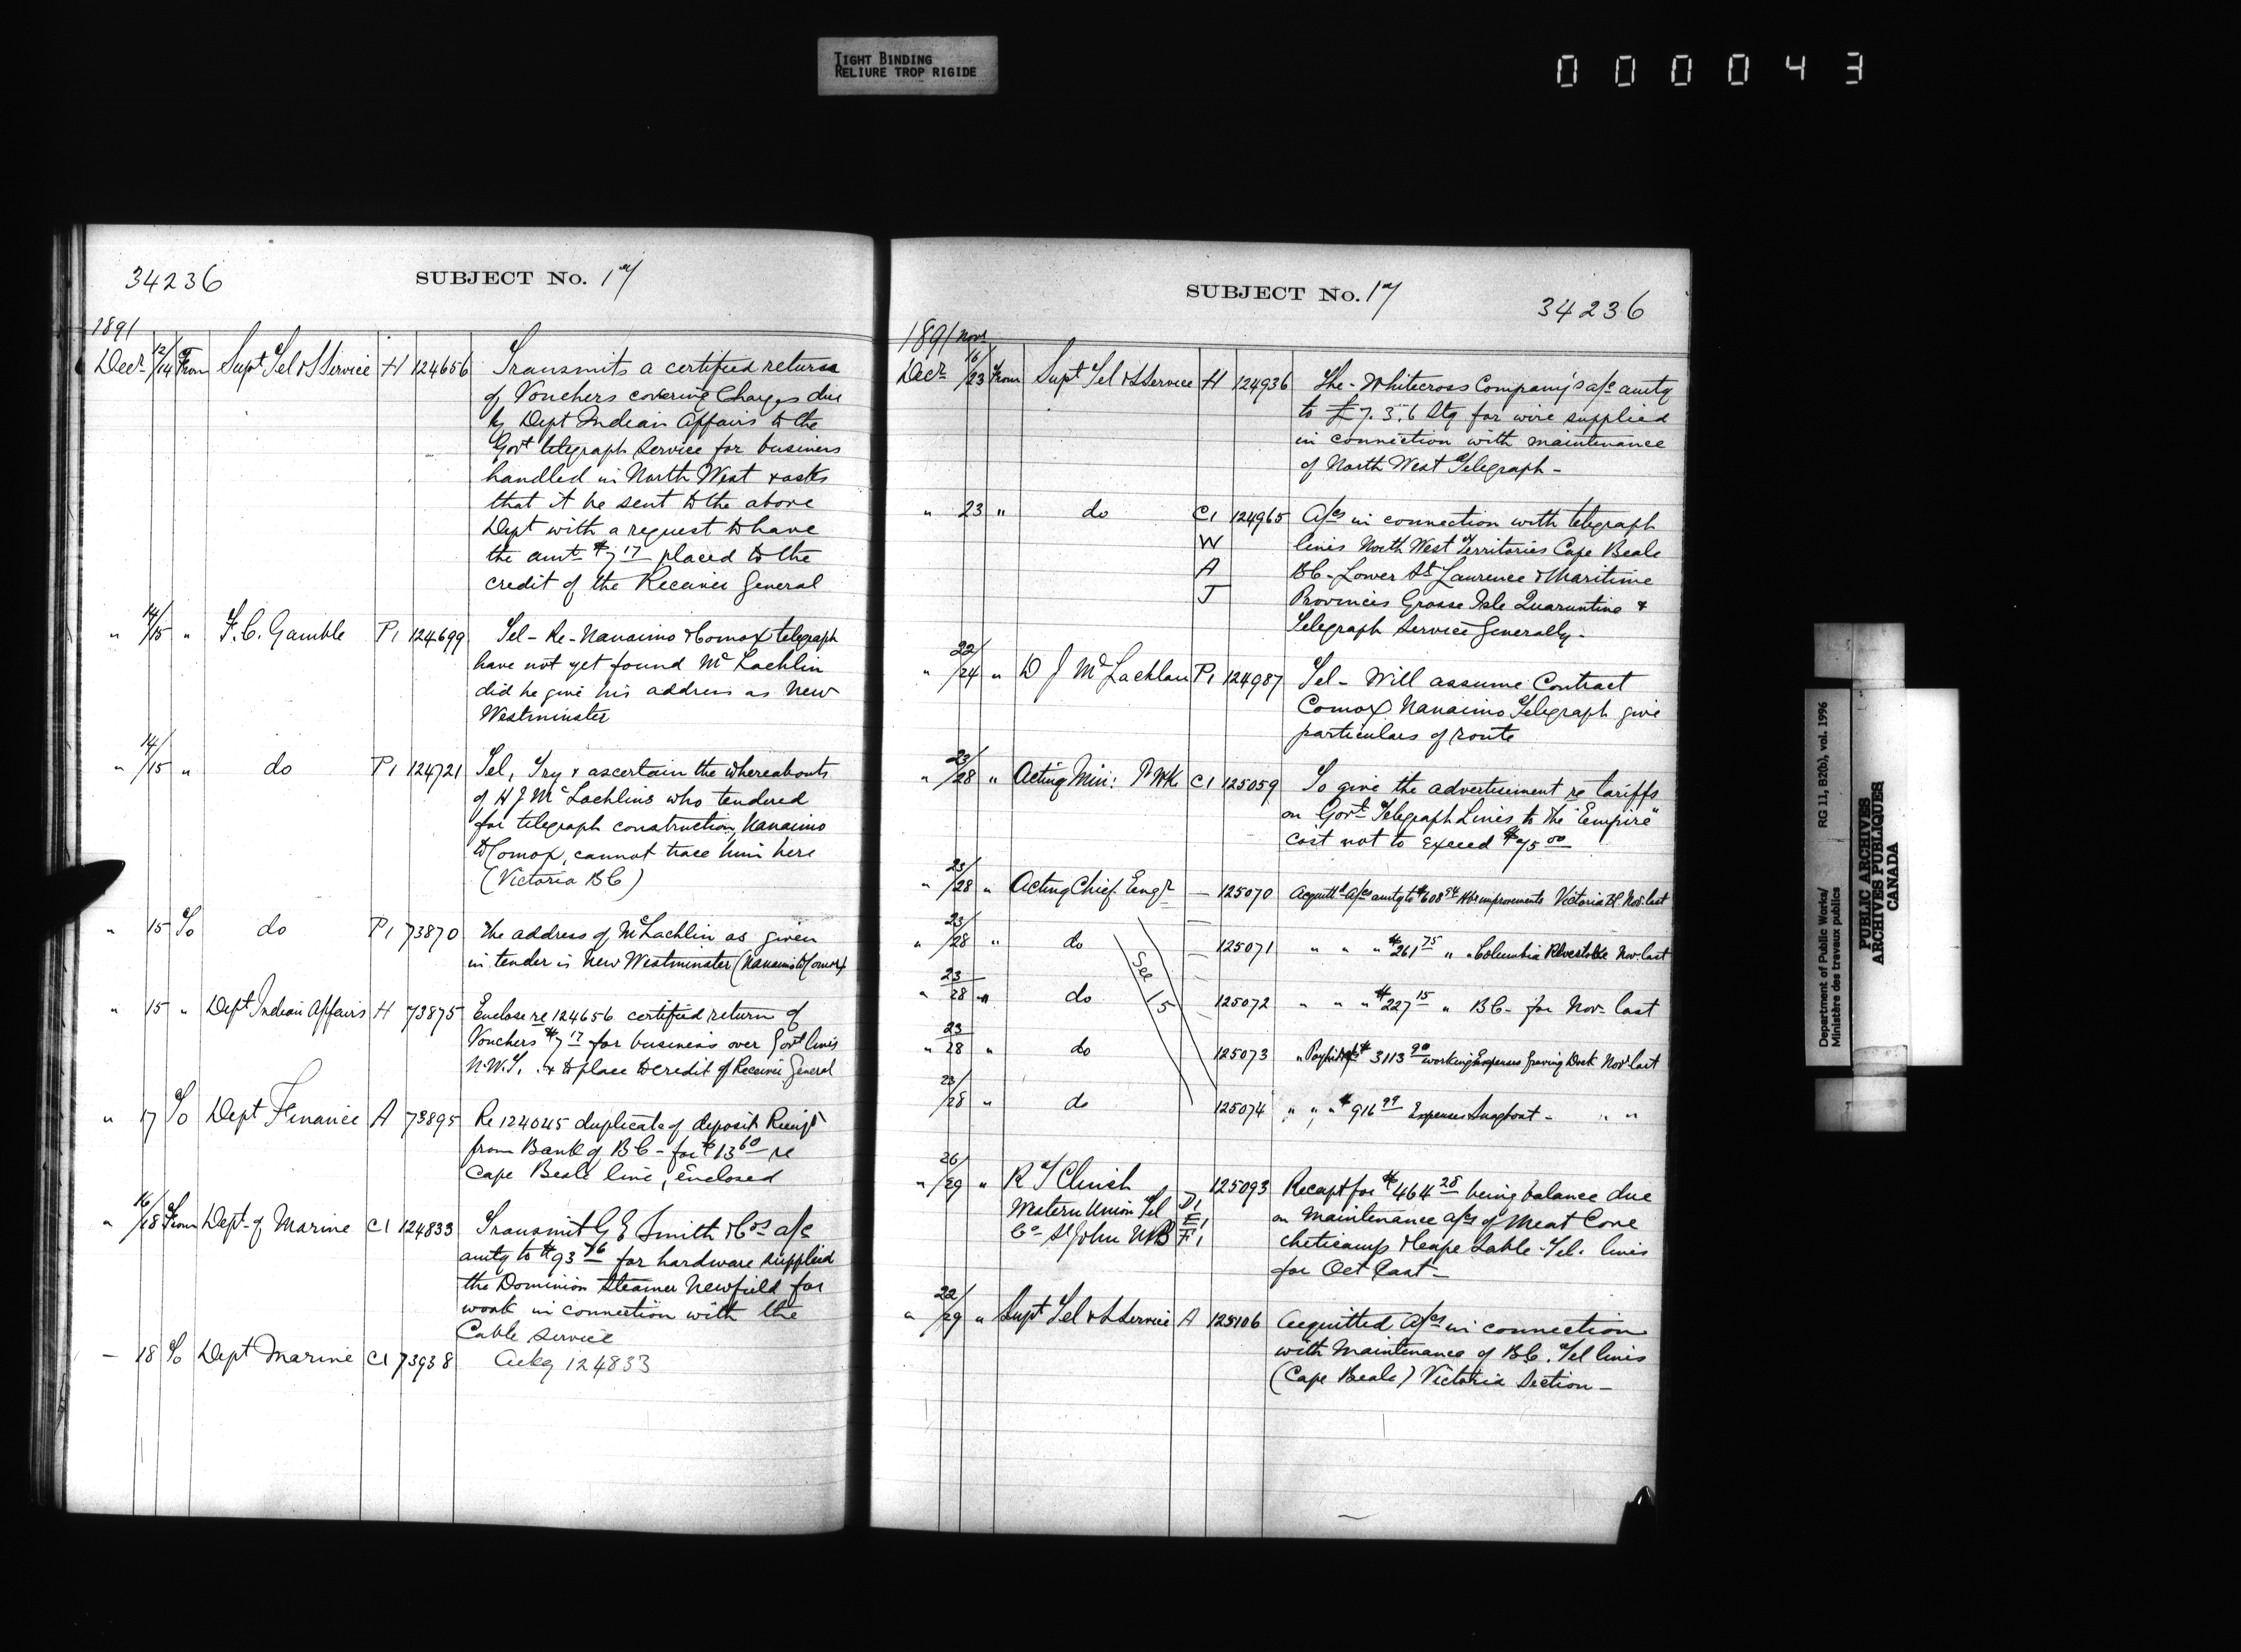 TIGHT BINDING
RELIURE TROP RIGIDE
000043
34236
SUBJECT No. 17
1891
Decr 12/14 From Supt Tel & S Service H 124656 Transmits a certified return
of Vouchers covering Charges due
by Dept Indian Affairs to the
Govt telegraph Service for business
handled in North West & asks
that it be sent to the above
Dept with a request to have
the amt $7 17 placed to the
credit of the Receiver General
" 14/15 " F. C. Gamble P1 124699 Tel - Re - Nanaimo & Comox telegraph
have not yet found Mc Lachlin
did he give his address as New
Westminster
" 14/15 " do P1 124721 Tel, Try & ascertain the whereabouts
of H J Mc Lachlins who tendered
for telegraph construction, Nanaimo
to Comox, cannot trace him here
(Victoria B C)
" 15 To do P1 73870 The address of McLachlin as given
in tender is New Westminster (Nanaimo to Comox
" 15 " Dept Indian Affairs H 73875 Enclose re 124656 certified return of
Vouchers $7 17 for business over Govt lines
N.W.T. & to place to credit of Receiver General
" 17 To Dept Finance A 73895 Re 124045 duplicate of deposit Receipt
from Bank of B C - for $13 60 re
Cape Beale line, enclosed
" 16/18 From Dept of Marine C1 124833 Transmit G E Smith & Cos a/c
amtg to $93 76 for hardware supplied
the Dominion Steamer Newfield for
work in connection with the
Cable Service
- 18 To Dept Marine C1 73938 Ackg 124833
SUBJECT No. 17
34236
1891 Novr
Decr 16/23 From Supt Tel & S Service H 124936 The - Whitecross Company's a/c amtg
to £7. 3. 6 Stg for wire supplied
in connection with maintenance
of North West Telegraph -
" 23 " do C1 124965 A/cs in connection with telegraph
W lines North West Territories Cape Beale
A BC - Lower St Laurence & Maritime
J Provinces Grosse Isle Quarantine &
Telegraph Service Generally -
" 22/24 " D J Mc Lachlan P1 124987 Tel - Will assume Contract
Comox Nanaimo Telegraph give
particulars of route
" 23/28 " Acting Min: P Wk C1 125059 To give the advertisement re tariffs
on Govt Telegraph Lines to the "Empire"
cost not to exceed $75 00
" 23/28 " Acting Chief Engr - 125070 Acquittd a/cs amtg to $608 94 Hbr improvements Victoria Nov. last
" 23/28 " do - 125071 " " " $261 75 " " Columbia Revelstoke Nov. last
See 15
" 23/28 " do 125072 " " " $227 15 " BC - for Nov. last
" 23/28 " do 125073 " $3113 90 working Expenses Graving Dock Nov. last
23/28 " do 125074 " " " $916 99 Expenses Snagboat - " "
" 26/29 " R T Clinch 125093 Receipt for $464 28 being balance due
Western Union Tel D1 on Maintenance a/cs of Meat Cove
Co St John NB E1 F1 Cheticamp & Cape Sable - Tel. lines
for Oct last -
" 22/29 " Supt Tel & S Service A 125106 Acquitted A/cs in connection
with Maintenance of B.C. Tel lines
(Cape Beale) Victoria Section -
Department of Public Works/
Ministère des travaux publics
RG 11, B2(b), vol. 1996
PUBLIC ARCHIVES
ARCHIVES PUBLIQUES
CANADA